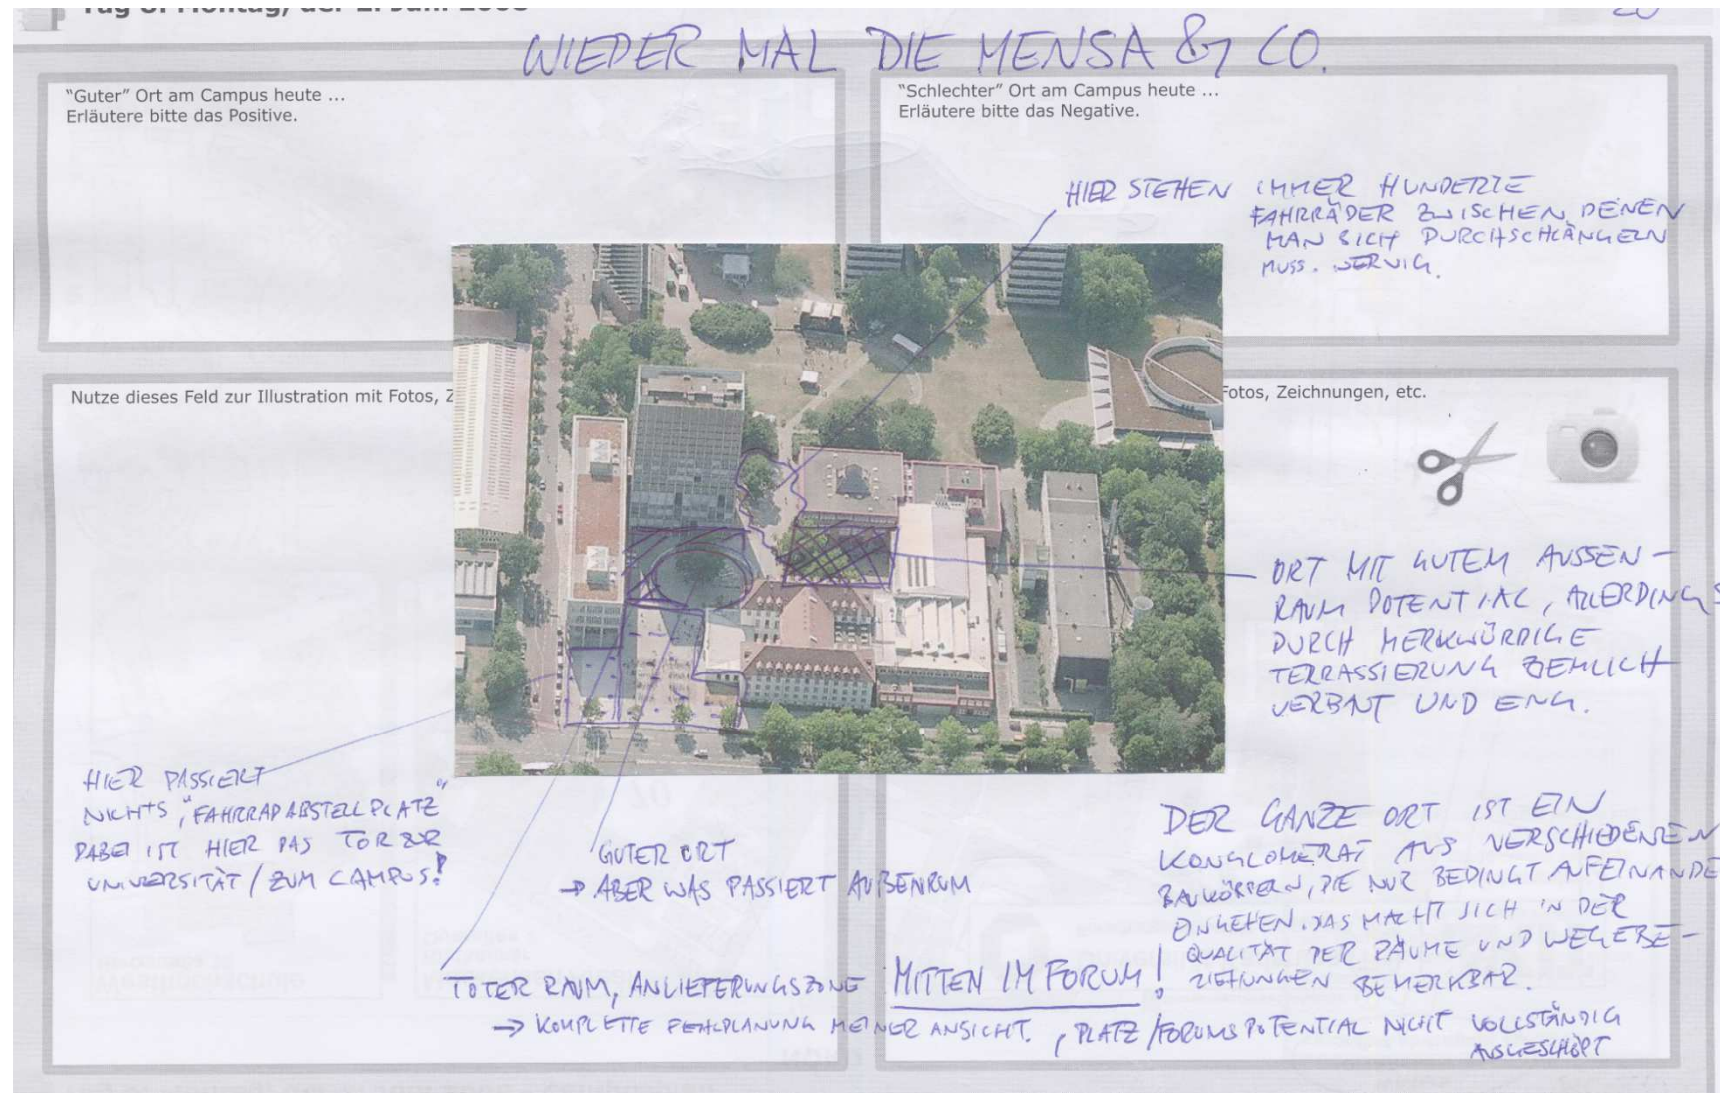 Tag 8: Montag, der 2. Juni 2008
WIEDER MAL DIE MENSA & CO.
"Guter" Ort am Campus heute ...
Erläutere bitte das Positive.
"Schlechter" Ort am Campus heute ...
Erläutere bitte das Negative.
HIER STEHEN IMMER HUNDERTE
FAHRRÄDER ZWISCHEN DENEN
MAN SICH DURCHSCHLÄNGELN
MUSS. NERVIG.
Nutze dieses Feld zur Illustration mit Fotos, Z
Fotos, Zeichnungen, etc.
ORT MIT GUTEM AUSSEN-
RAUM POTENTIAL, ALLERDINGS
DURCH MERKWÜRDIGE
TERRASSIERUNG ZIEMLICH
VERBAUT UND ENG.
HIER PASSIERT
NICHTS, "FAHRRADABSTELLPLATZ"
DABEI IST HIER DAS TOR ZUR
UNIVERSITÄT / ZUM CAMPUS!
GUTER ORT
→ ABER WAS PASSIERT AUßENRUM
DER GANZE ORT IST EIN
KONGLOMERAT AUS VERSCHIEDENEN
BAUKÖRPERN, DIE NUR BEDINGT AUFEINANDE
EINGEHEN. DAS MACHT SICH IN DER
QUALITÄT DER RÄUME UND WEGEBE-
ZIEHUNGEN BEMERKBAR.
TOTER RAUM, ANLIEFERUNGSZONE MITTEN IM FORUM!
→ KOMPLETTE FEHLPLANUNG MEINER ANSICHT. , PLATZ/FORUMSPOTENTIAL NICHT VOLLSTÄNDIG
AUSGESCHÖPFT